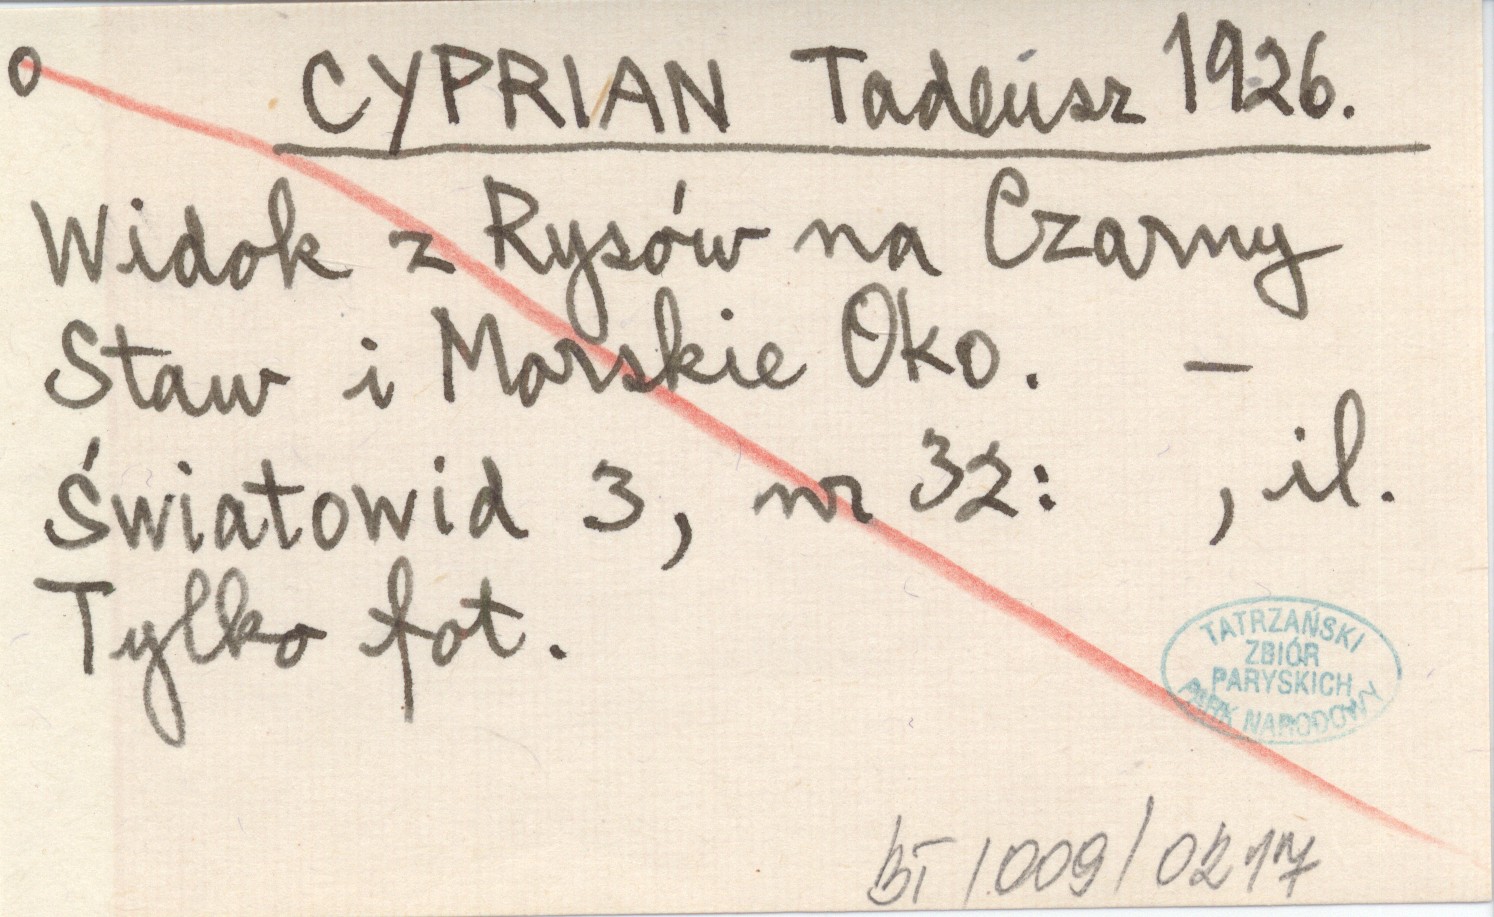 o CYPRIAN Tadeusz 1926.
Widok z Rysów na Czarny
Staw i Morskie Oko. –
Światowid 3, nr 32: , il.
Tylko fot.
TATRZAŃSKI
ZBIÓR
PARYSKICH
PARK NARODOWY
BT/009/0217